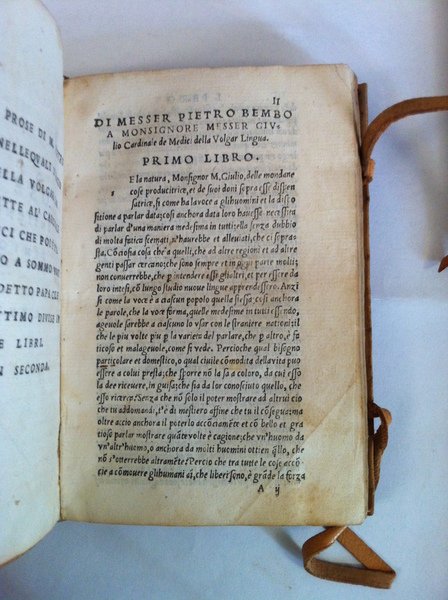 PROSE DI M.
NELLEQUALI
ELLA VOLGAR
ETTE AL CAR
ICI CHE POI
O A SOMMO
DETTO PAPA CLE
TTIMO DIVISE IN
E LIBRI.
N SECONDA.
II
DI MESSER PIETRO BEMBO
A MONSIGNORE MESSER GIV-
lio Cardinale de Medici della Volgar Lingua.
PRIMO LIBRO.
E la natura, Monsignor M. Giulio, delle mondane
cose producitrice, et de suoi doni sopra esse dispen
satrice, si come ha la voce a gli huomini et la dispo
sitione a parlar data; cosi anchora data loro hauesse necessita
di parlar d'una maniera medesima in tutti; ella senza dubbio
di molta fatica scemati n'haurebbe et alleuiati, che ci sopra
sta. Cōciosia cosa che a quelli, che ad altre regioni et ad altre
genti passar cercano; che sono sempre et in ogni parte molti;
non conuerrebbe, che p intendere essi gli altri, et per essere da
loro intesi, cō lungo studio nuoue lingue apprendessero. Anzi
si come la voce è a ciascun popolo quella stessa; cosi anchora
le parole, che la voce forma, quelle medesime in tutti essendo,
ageuole sarebbe a ciascuno lo vsar con le straniere nationi: il
che le piu volte piu p la varieta del parlare, che p altro, è fa
ticoso et malageuole, come si vede. Percioche qual bisogno
particolare et domestico, o qual ciuile cōmodita della vita puo
essere a colui presta; che sporre nō la sa a coloro, da cui essa
la dee riceuere, in guisa; che sia da lor conosciuto quello, che
esso ricerca? Senza che non solo il poter mostrare ad altrui cio
che tu addomandi, t'è di mestiero affine che tu il cōsegua: ma
oltre accio anchora il poterlo accōciamēte et cō bello et gra
tioso parlar mostrare quāte volte è cagione; che vn'huomo da
vn'altr'huomo, o anchora da molti huomini ottien q̄llo, che
nō s'otterrebbe altramēte? Percio che tra tutte le cose accōcie
a cōmouere gli humani aī, che liberi sono, è grāde la forza
A ij